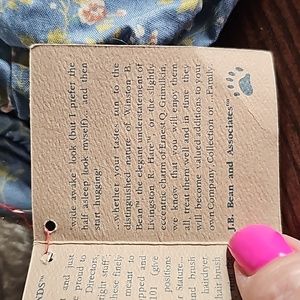 "wide-awake" look (but I prefer the
half-asleep look myself)... and then
start hugging!
...whether your tastes run to the
distinguished nature of Winston B.
Bean™, the elegant understatement of
Livingston R. Hare™ or the slightly
eccentric charm of Ernest Q. Grimilkin
... we know that you will enjoy them
all, treat them well and in time they
will become valued additions to your
own Company Collection or ... Family.
J.B. Bean and Associates™
NDS™
and just
proud to
Directors,
right stuff"
these finely
meant to
pped and
positions
Stature.
and brush
Laundryer
hair brush